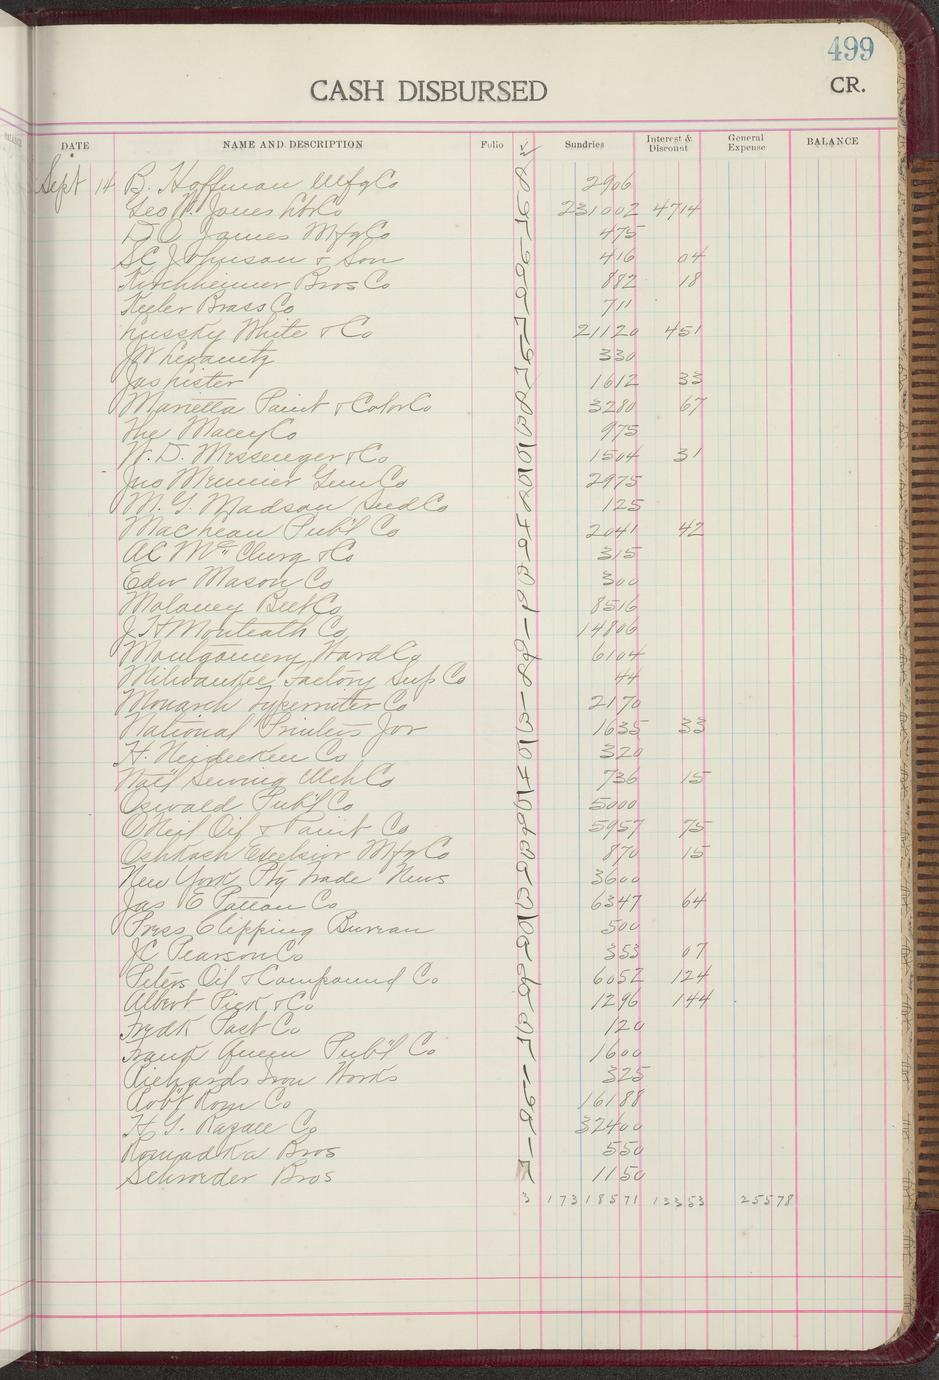 499
CASH DISBURSED
CR.
DATE NAME AND DESCRIPTION Folio Sundries Interest & Discount General Expense BALANCE
Sept 14 B. Hoffman Mfg Co 2906
Geo W. Jones Co 231002 4714
D O James Mfg Co 475
SC Johnson & Son 416 04
Kirchheimer Bros Co 882 18
Keeler Brass Co 711
White & Co 21120 451
330
Jas 1612 33
Marietta Paint & Color Co 3280 67
The Macey Co 975
W. D. Messenger & Co 1504 31
Jno Meunier Gun Co 2975
M. G. Madson Seed Co 125
MacLean Pub'l Co 2041 42
AC McClurg & Co 315
Edw Mason Co 300
Co 8516
J. H Monteath Co 14806
Montgomery Ward Co 6104
Milwaukee Factory Sup Co 44
Monarch Typewriter Co 2170
National Printers Jor 1635 33
H. Niedecken Co 320
Nat'l Sewing Mch Co 736 15
Oswald Pub'l Co 5000
O'Neil Oil & Paint Co 5957 75
Oshkosh Excelsior Mfg Co 870 15
New York Trade News 3600
Jas E Patton Co 6347 64
Press Clipping Bureau 500
JC Pearson Co 353 07
Peters Oil & Compound Co 6052 124
Albert Pick & Co 1296 144
Fredk Post Co 120
Frank Queen Pub'l Co 1600
Richards Iron Works 325
Rob't Rom Co 16188
H. G. Razall Co 32400
Romadka Bros 550
Schroeder Bros 1150
3 17318571 13353 25578